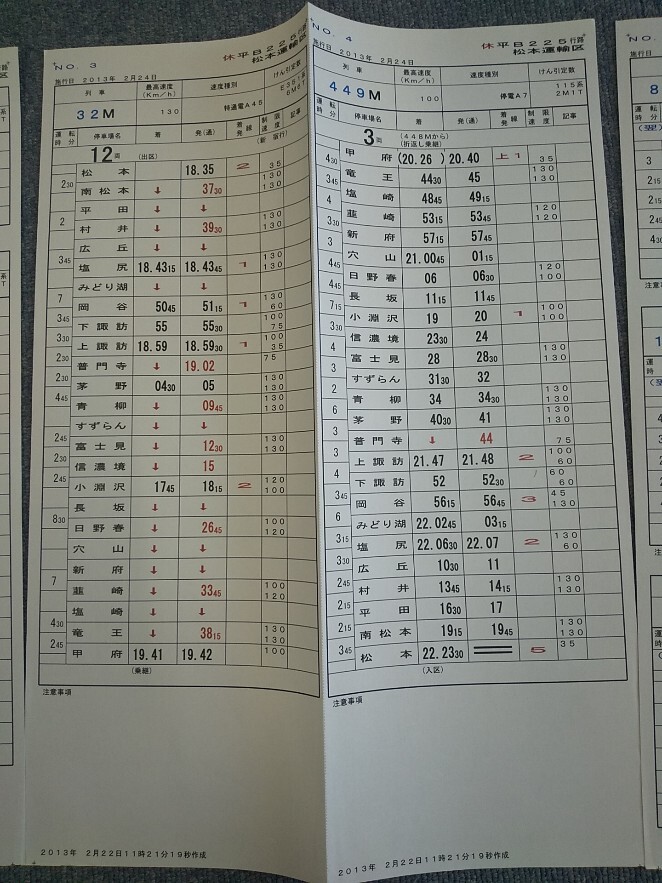 NO. 3
休平B225行路
松本運輸区
施行日 2013年 2月24日
列車 最高速度(Km/h) 速度種別 けん引定数
32M 130 特通電A45
運転時分 停車場名 着 発(通) 着発線 制限速度 記事
12両 (出区) (新宿行)
松本 18.35 2 35 130
2 30 南松本 ↓ 37 30 130
平田 ↓ ↓
2 村井 ↓ 39 30 130 130
広丘 ↓ ↓
3 45 塩尻 18.43 15 18.43 45 1 130 130
みどり湖 ↓ ↓
7 岡谷 50 45 51 15 1 130 60
3 45 下諏訪 55 55 30 100 75
3 30 上諏訪 18.59 18.59 30 1 100 35
2 30 普門寺 ↓ 19.02 75
2 30 茅野 04 30 05 130 130
4 45 青柳 ↓ 09 45 130 130
すずらん ↓ ↓
2 45 富士見 ↓ 12 30 130 130
2 30 信濃境 ↓ 15
2 45 小淵沢 17 45 18 15 2 120 100
長坂 ↓ ↓
8 30 日野春 ↓ 26 45 100 120
穴山 ↓ ↓
新府 ↓ ↓
7 韮崎 ↓ 33 45 100 120
塩崎 ↓ ↓
4 30 竜王 ↓ 38 15 130 130
2 45 甲府 19.41 19.42 100
(乗継)
注意事項
2013年 2月22日11時21分19秒作成
NO. 4
休平B225行路
松本運輸区
施行日 2013年 2月24日
列車 最高速度(Km/h) 速度種別 けん引定数
449M 100 停電A7 115系 2M1T
運転時分 停車場名 着 発(通) 着発線 制限速度 記事
3両 (448Mから) (折返し乗継)
甲府 (20.26) 20.40 上1 35
4 30 竜王 44 30 45 130 130
3 45 塩崎 48 45 49 15
4 韮崎 53 15 53 45 120 120
3 30 新府 57 15 57 45
3 穴山 21.00 45 01 15
4 45 日野春 06 06 30 120 100
4 45 長坂 11 15 11 45
7 15 小淵沢 19 20 1 100 100
3 30 信濃境 23 30 24
4 富士見 28 28 30 130 130
3 すずらん 31 30 32
2 青柳 34 34 30 130 130
6 茅野 40 30 41 130
3 普門寺 ↓ 44 75
3 上諏訪 21.47 21.48 2 100 60
4 下諏訪 52 52 30 60 60
3 45 岡谷 56 15 56 45 3 45 130
6 みどり湖 22.02 45 03 15
3 15 塩尻 22.06 30 22.07 2 130 60
広丘 10 30 11
2 45 村井 13 45 14 15 130 130
2 15 平田 16 30 17
2 15 南松本 19 15 19 45 130 130
3 45 松本 22.23 30 5 35
(入区)
注意事項
2013年 2月22日11時21分19秒作成